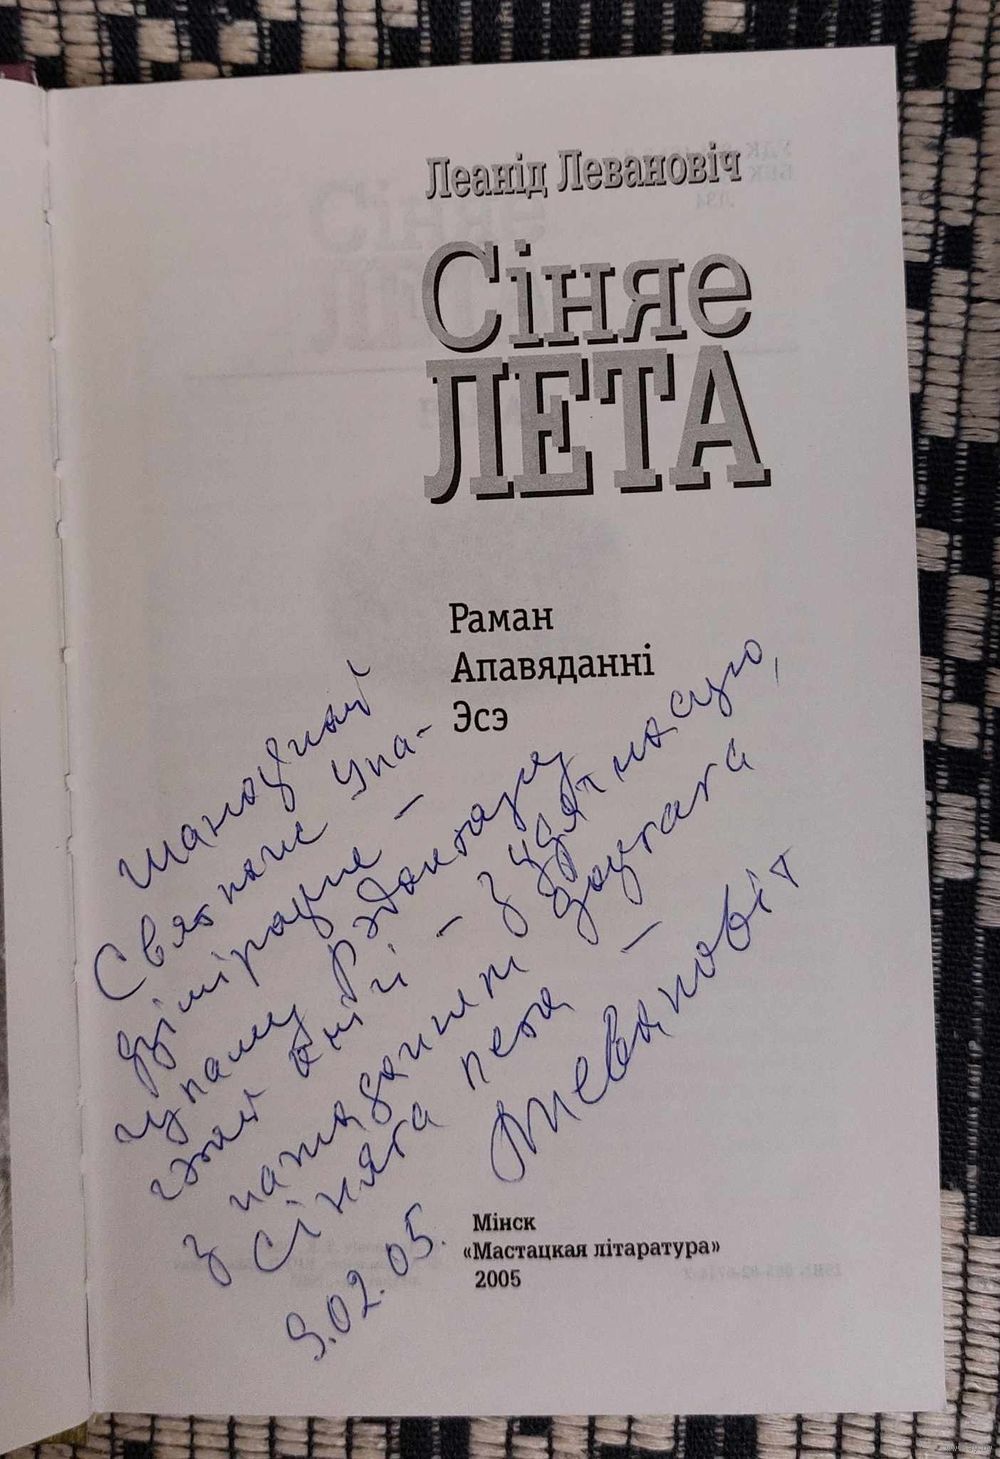 Леанід Левановіч
Сіняе
ЛЕТА
Раман
Апавяданні
Эсэ
Шаноўнай
Святлане Ула-
дзіміраўне –
чуламу Рэдактару
гэтай кнігі – з удзячнасцю,
з пажаданнем доўгага
Сіняга лета –
ЛЛевановіч
9.02.05.
Мінск
«Мастацкая літаратура»
2005